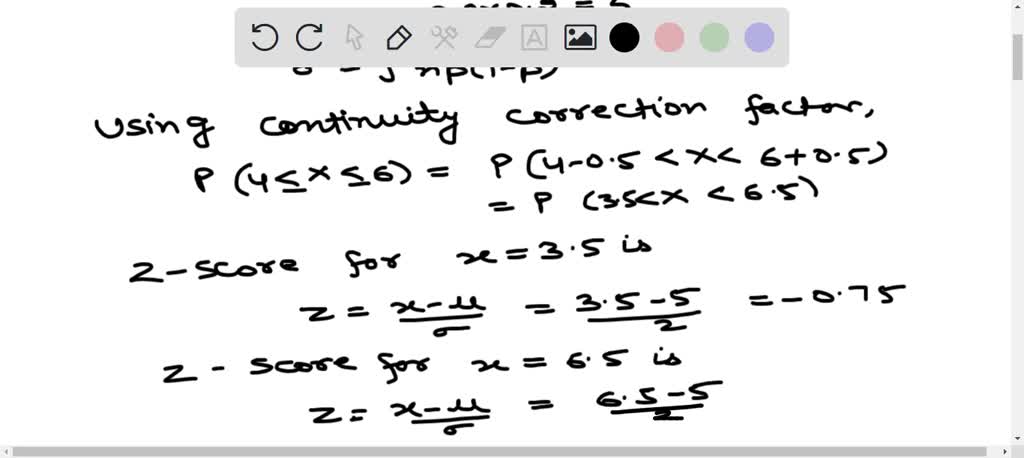 Using continuity correction factor,
P (4 ≤ x ≤ 6) = P (4-0.5 < x < 6+0.5)
= P (3.5 < x < 6.5)
Z-score for x = 3.5 is
Z = x-μ/σ = 3.5-5/2 = -0.75
Z - score for x = 6.5 is
Z = x-μ/σ = 6.5-5/2